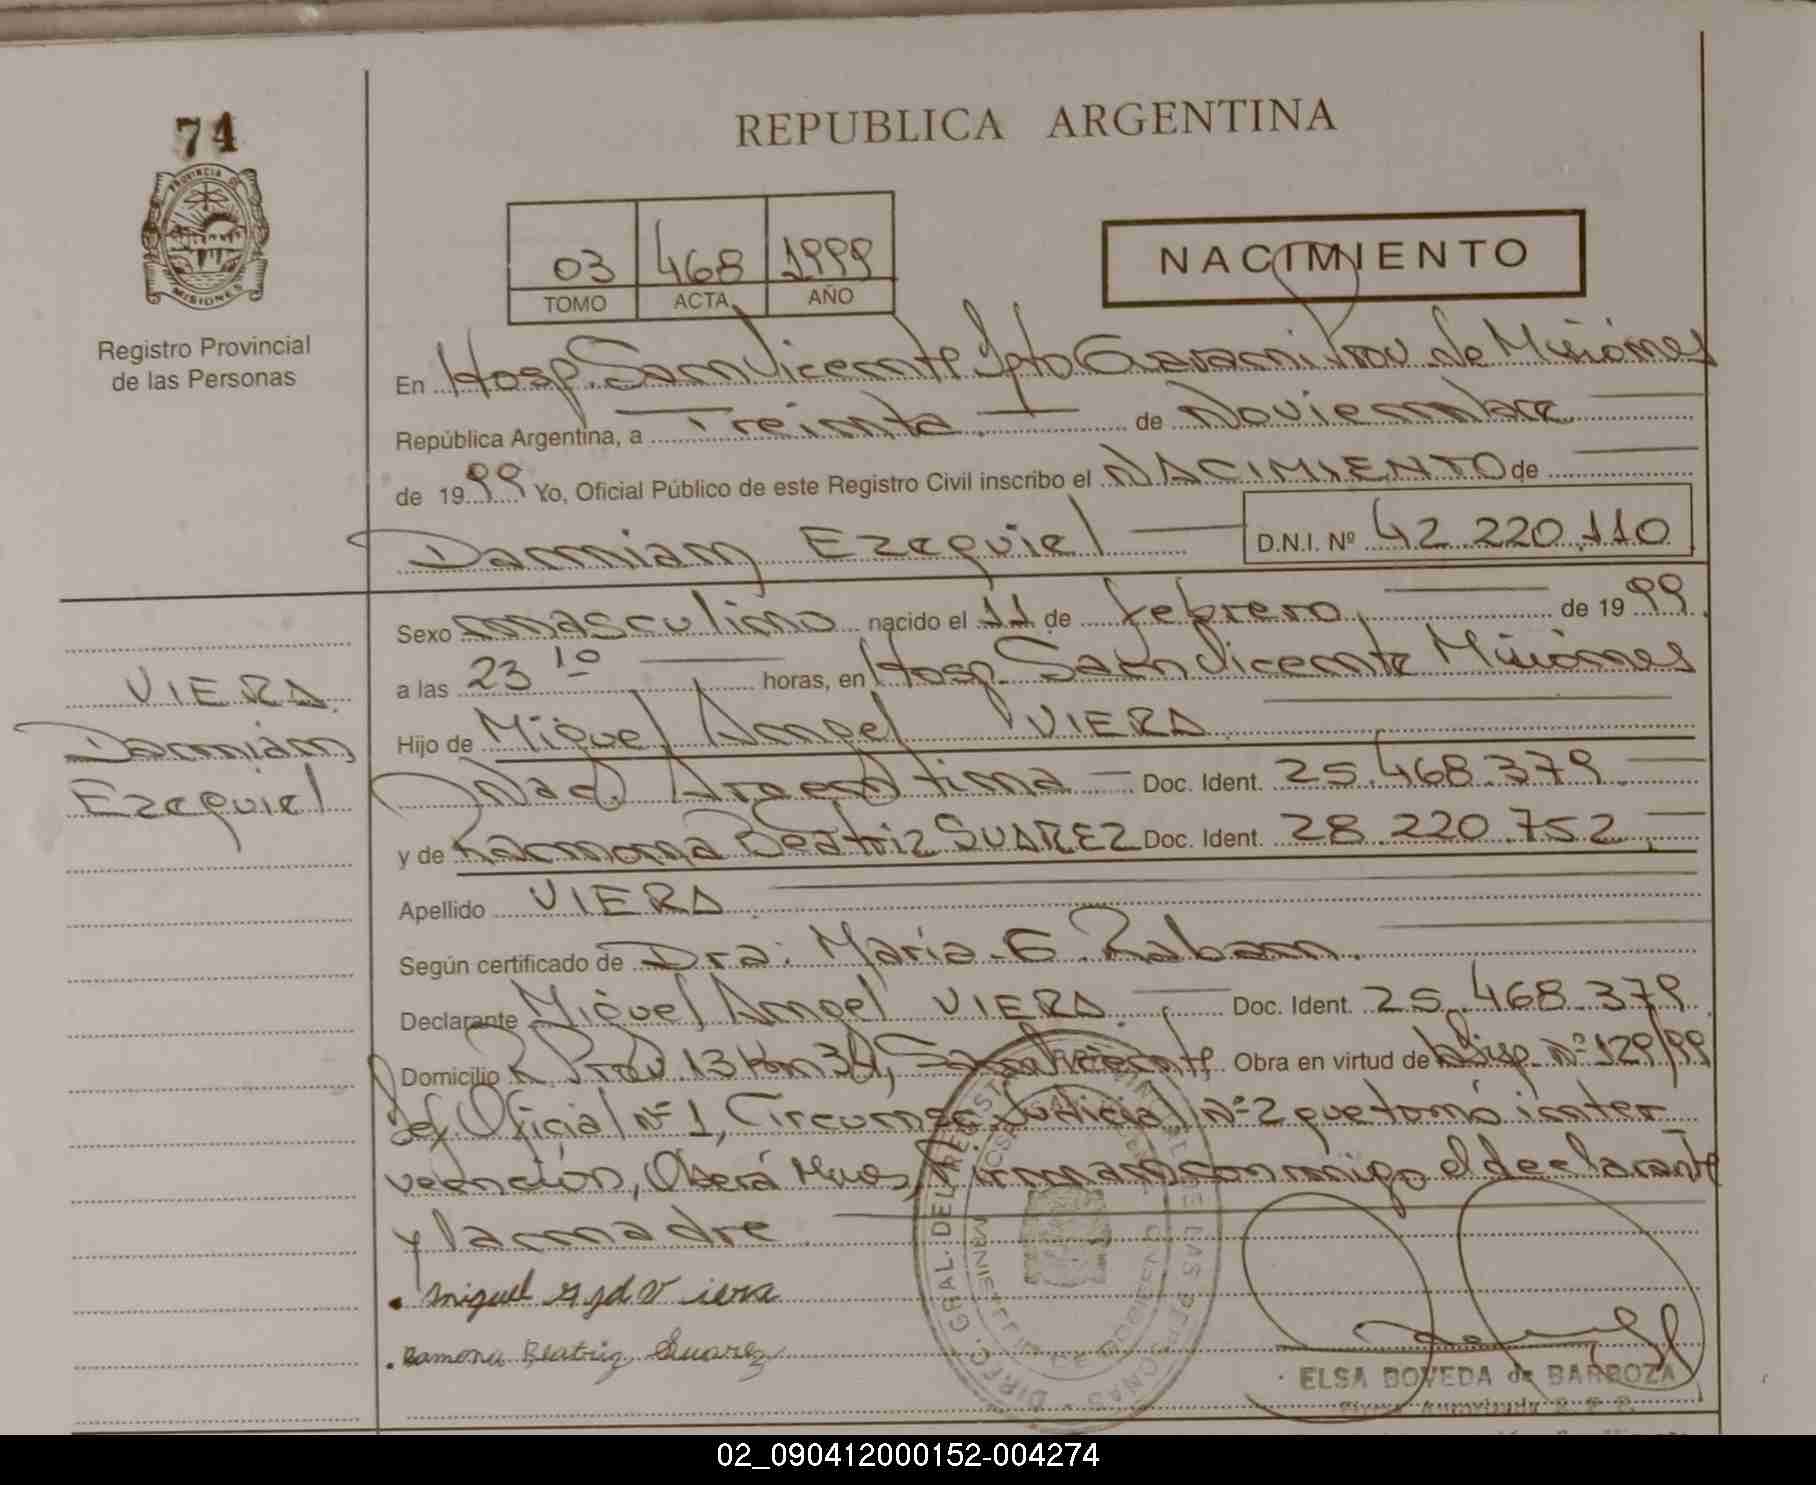 74
PROVINCIA DE
MISIONES
Registro Provincial
de las Personas
REPUBLICA ARGENTINA
03 468 1999
TOMO ACTA AÑO
NACIMIENTO
En Hosp. San Vicente Dpto Guarani Prov. de Misiones
República Argentina, a Treinta de Noviembre
de 1999 Yo, Oficial Público de este Registro Civil inscribo el NACIMIENTO de
Damian Ezequiel D.N.I. Nº 42.220.110
Sexo masculino nacido el 11 de febrero de 1999
a las 23 10 horas, en Hosp. San Vicente Misiones
Hijo de Miguel Angel VIERA
Nac. Argentina Doc. Ident. 25.468.379
y de Ramona Beatriz SUAREZ Doc. Ident. 28.220.752
Apellido VIERA
Según certificado de Dra. Maria. G. Raban.
Declarante Miguel Angel VIERA Doc. Ident. 25.468.379
Domicilio R. Prov 13 Km 34, San Vicente Obra en virtud de Disp. Nº 129/99
Def. Oficial Nº 1, Circunsc. Judicial Nº 2 que tomó inter
vención, Oberá Mnes, Firman conmigo el declarante
y la madre
VIERA
Damián
Ezequiel
Miguel Viera
Ramona Beatriz Suarez
DIREC. GRAL. DEL REGISTRO PROVINCIAL DE LAS PERSONAS
ELSA DOVEDA de BARBOZA
Firma Autorizada R. P. P.
02_090412000152-004274